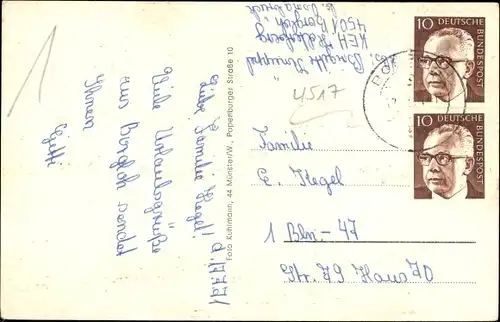 Liebe Familie Kegel!
Viele Urlaubsgrüße
aus Borgloh sendet
Ihnen
KEH Holterberg
4501 Borgloh
b. Osnabrück
4517
Foto Kuhlmann, 44 Münster/W., Papenburger Straße 10
10 DEUTSCHE BUNDESPOST
10 DEUTSCHE BUNDESPOST
Familie
E. Kegel
1 Bln-47
Str. 79 Haus 70